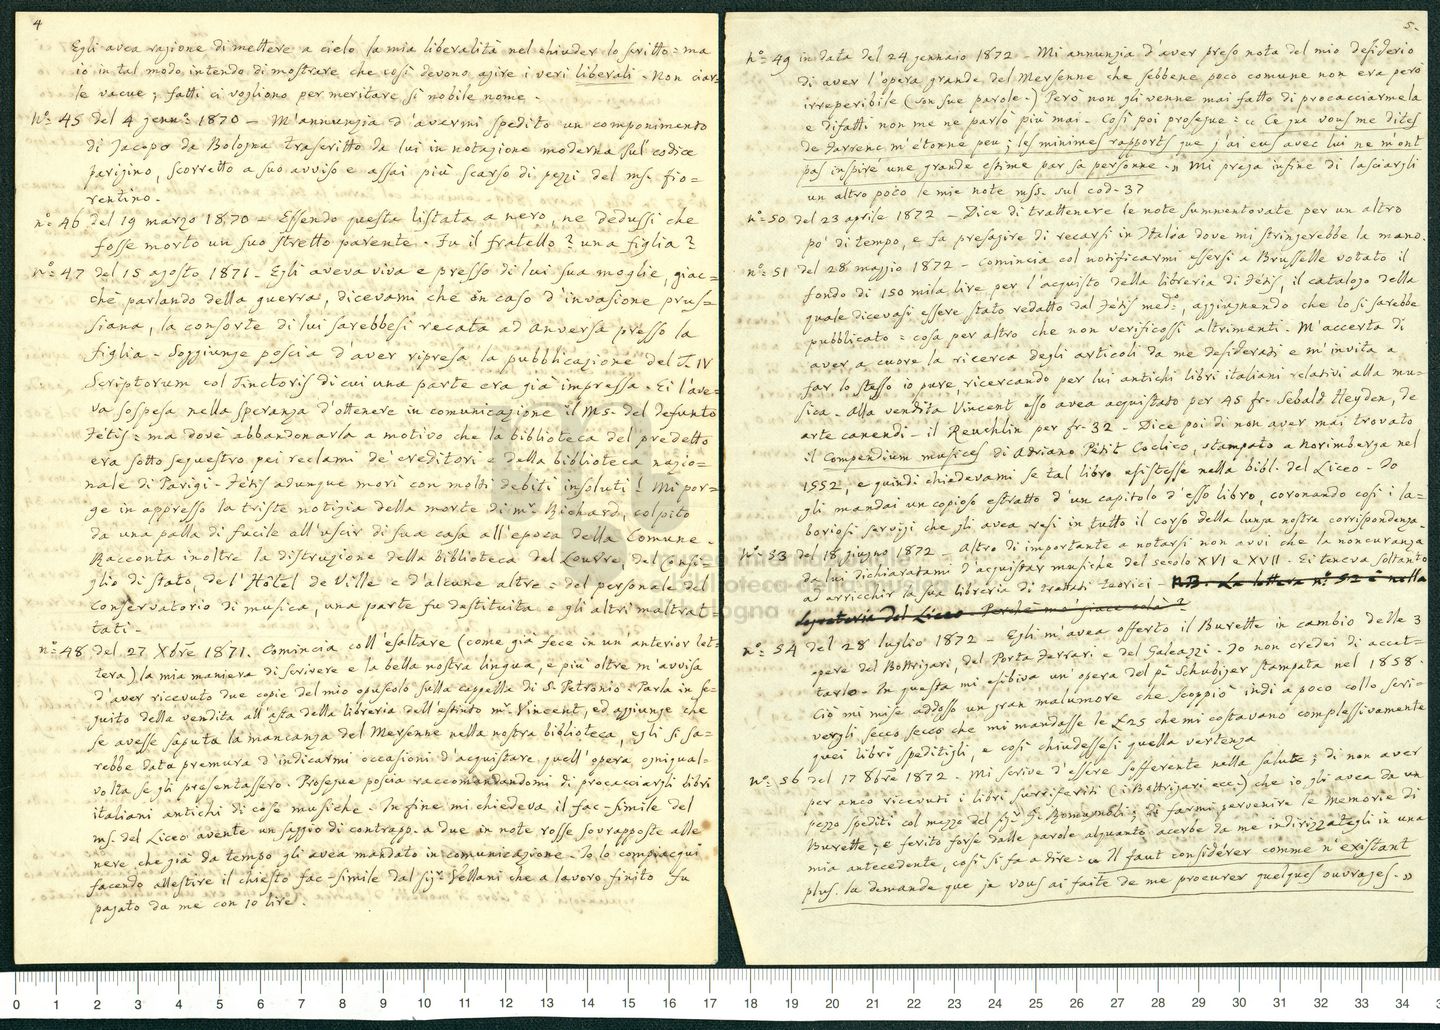 4
Egli avea ragione di mettere a cielo la mia liberalità nel chiuder lo scritto = ma
io in tal modo intendo di mostrare che così devono agire i veri liberali - Non ciar=
le vacue; fatti ci vogliono per meritare sì nobile nome.
n.° 45 del 4 genn.° 1870 - M'annunzia d'avermi spedito un componimento
di Jacopo da Bologna trascritto da lui in notazione moderna sul codice
parigino, scorretto a suo avviso e assai più scarso di pezzi del ms. fio=
rentino.
n.° 46 del 19 marzo 1870 - Essendo questa listata a nero, ne dedussi che
fosse morto un suo stretto parente. Fu il fratello? una figlia?
n.° 47 del 15 agosto 1871 - Egli aveva viva e presso di lui sua moglie, giac=
chè parlando della guerra, dicevami che in caso d'invasione prus=
siana, la consorte di lui sarebbesi recata ad Anversa presso la
figlia - Soggiunge poscia d'aver ripresa la pubblicazione del T. IV
Scriptorum col Tinctoris di cui una parte era già impressa. Ei l'ave=
va sospesa nella speranza d'ottenere in comunicazione il ms. del defunto
Fétis = ma dovè abbandonarla a motivo che la biblioteca del predetto
era sotto sequestro pei reclami de' creditori e dalla biblioteca nazio=
nale di Parigi - Fétis adunque morì con molti debiti insoluti! Mi por=
ge in appresso la triste notizia della morte di m.r Richard, colpito
da una palla di fucile all'uscir di sua casa all'epoca della Comune -
Racconta inoltre la distruzione della biblioteca del Louvre, del Consi=
glio di stato, de l'Hôtel de Ville e d'alcune altre = del personale del
Conservatorio di musica, una parte fu destituita e gli altri maltrat=
tati -
n.° 48 del 27 Xbre 1871. Comincia coll'esaltare (come già fece in un'anterior let=
tera) la mia maniera di scrivere e la bella nostra lingua, e più oltre m'avvisa
d'aver ricevuto due copie del mio opuscolo sulla cappella di S. Petronio - Parla in se=
guito della vendita all'asta della libreria dell'estinto m.r Vincent, ed aggiunge che
se avesse saputa la mancanza del Mersenne nella nostra biblioteca, egli si sa=
rebbe data premura d'indicarmi occasioni d'acquistare quell'opera, ogniqual=
volta se gli presentassero - Prosegue poscia raccomandandomi di procacciargli libri
italiani antichi di cose musiche. In fine mi chiedeva il fac-simile del
ms. del Liceo avente un saggio di contrapp. a due in note rosse sovrapposte alle
nere che già da tempo gli avea mandato in comunicazione - Io lo compiacqui
facendo allestire il chiesto fac-simile dal sig.r Vellani che a lavoro finito fu
pagato da me con 10 lire.
5.
n.° 49 in data del 24 gennaio 1872 - Mi annunzia d'aver preso nota del mio desiderio
di aver l'opera grande del Mersenne che sebbene poco comune non era però
irreperibile (son sue parole -) Però non gli venne mai fatto di procacciarmela
e difatti non me ne parlò più mai - Così poi prosegue = « Ce que vous me dites
de Farrenc m'étonne peu; les minimes rapports que j'ai eus avec lui ne m'ont
pas inspiré une grande estime par sa personne - » Mi prega infine di lasciargli
un altro poco le mie note mss. sul cod. 37
n.° 50 del 23 aprile 1872 - Dice di trattenere le note summentovate per un altro
po' di tempo, e fa presagire di recarsi in Italia dove mi stringerebbe la mano.
n.° 51 del 28 maggio 1872 - Comincia col notificarmi essersi a Brusselle votato il
fondo di 150 mila lire per l'acquisto della libreria di Fétis, il catalogo della
quale dicevasi essere stato redatto dal Fétis med.°, aggiugnendo che lo si sarebbe
pubblicato = cosa per altro che non verificossi altrimenti - M'accerta di
aver a cuore la ricerca degli articoli da me desiderati e m'invita a
far lo stesso io pure, ricercando per lui antichi libri italiani relativi alla mu=
sica - Alla vendita Vincent esso avea acquistato per 45 fr. Sebald. Heyden, de
arte canendi - il Reuchlin per fr. 32 - Dice poi di non aver mai trovato
il Compendium musices di Adriano Petit Coclico, stampato a Norimberga nel
1552, e quindi chiedevami se tal libro esistesse nella bibl. del Liceo - Io
gli mandai un copioso estratto d'un capitolo d'esso libro, coronando così i la=
boriosi servizi che gli avea resi in tutto il corso della lunga nostra corrispondenza.
n.° 53 del 18 giugno 1872 - Altro di importante a notarsi non avvi che la noncuranza
da lui dichiaratami d'acquistar musiche del secolo XVI e XVII. Ei teneva soltanto
ad arricchir la sua libreria di trattati teorici - N.B. La lettera n.° 52 è nella
segreteria del Liceo. Perchè mo giace colà?
n.° 54 del 28 luglio 1872 - Egli m'avea offerto il Burette in cambio delle 3
opere del Bottrigari, del Porta Ferrari e del Galeazzi - Io non credei di accet=
tarlo. In questa mi esibiva un'opera del p.e Schubiger stampata nel 1858.
Ciò mi mise addosso un gran malumore che scoppiò indi a poco collo scri=
vergli secco secco che mi mandasse le £ 25 che mi costavano complessivamente
quei libri speditigli, e così chiudessesi quella vertenza
n.° 56 del 17 8bre 1872 - Mi scrive d'essere sofferente nella salute; di non aver
per anco ricevuti i libri surriferiti (i Bottrigari ecc.) che io gli avea da un
pezzo spediti col mezzo del sig.r G. Romagnoli; di farmi pervenire le Memorie di
Burette, e ferito forse dalle parole alquanto acerbe da me indirizzategli in una
mia antecedente, così si fa a dire = « Il faut considérer comme n'existant
plus, la demande que je vous ai faite de me procurer quelques ouvrages. »
museo internazionale
e biblioteca della musica
di bologna
0 1 2 3 4 5 6 7 8 9 10 11 12 13 14 15 16 17 18 19 20 21 22 23 24 25 26 27 28 29 30 31 32 33 34